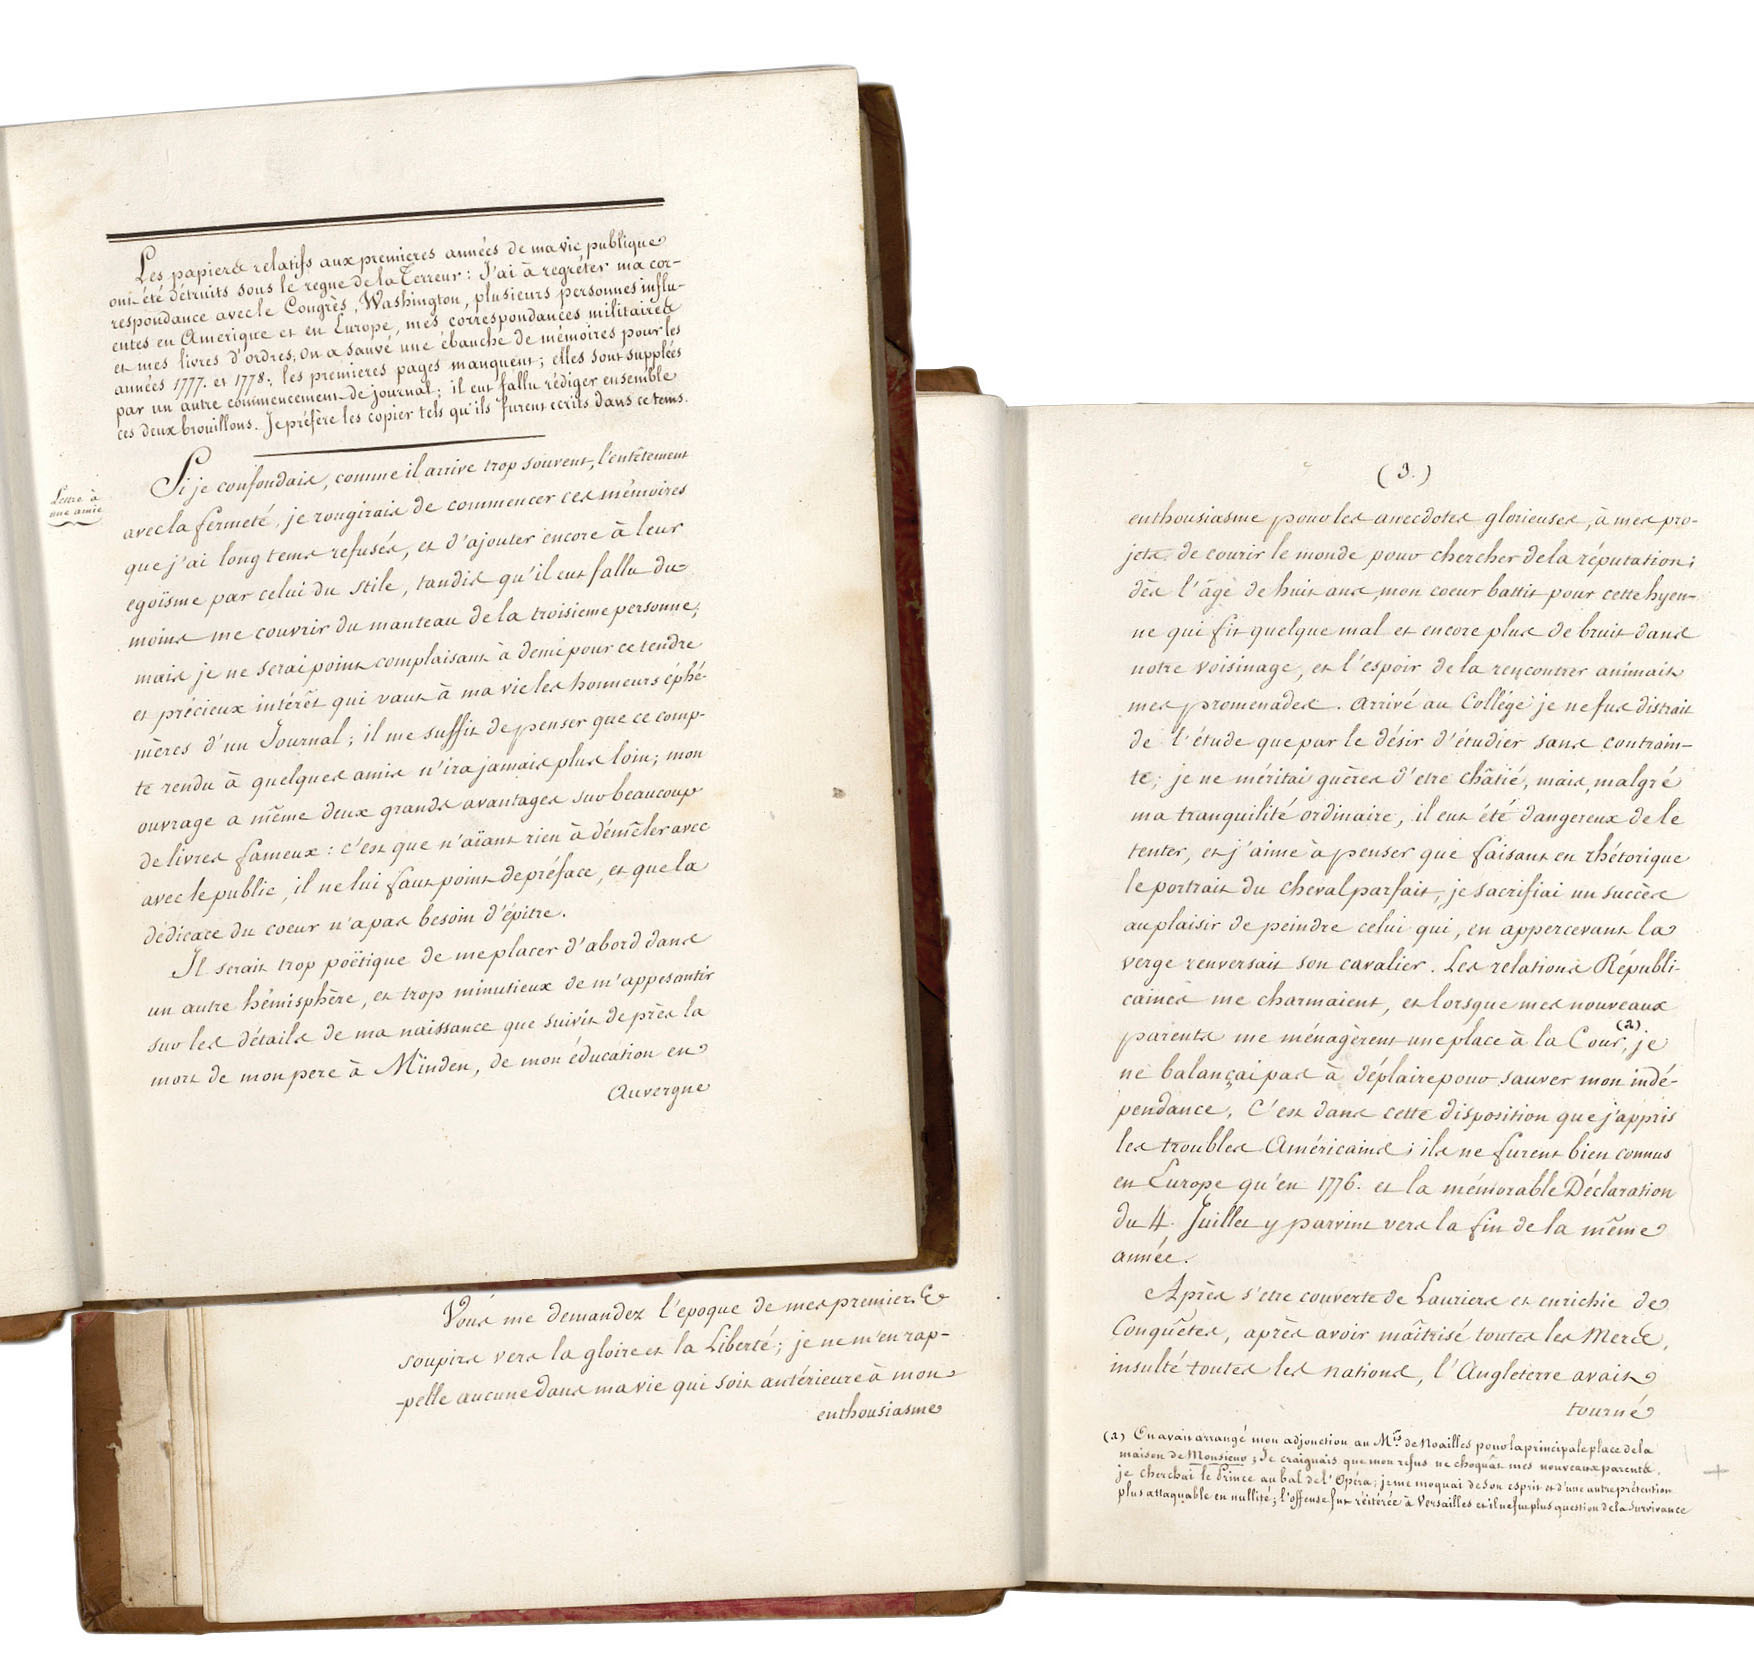 Les papiers relatifs aux premieres années de ma vie publique
ont été détruits sous le regne de la Terreur : J'ai à regréter ma cor-
respondance avec le Congrès, Washington, plusieurs personnes influ-
entes en Amerique et en Europe, mes correspondances militaires
et mes livres d'ordres, on a sauvé une ébauche de mémoires pour les
années 1777. et 1778., les premieres pages manquent ; elles sont supplées
par un autre commencement de journal ; il eut fallu rédiger ensemble
ces deux brouillons. Je préfère les copier tels qu'ils furent ecrits dans ce tems.
Lettre à
une amie
Si je confondais, comme il arrive trop souvent, l'entêtement
avec la fermeté, je rougirais de commencer ces mémoires
que j'ai long tems refusés, et d'ajouter encore à leur
egoïsme par celui du stile, tandis qu'il eut fallu du=
moins me couvrir du manteau de la troisieme personne,
mais je ne serai point complaisant à demi pour ce tendre
et précieux intérêt qui vaut à ma vie les honneurs éphé-
mères d'un Journal ; il me suffit de penser que ce comp-
te rendu à quelques amis n'ira jamais plus loin ; mon
ouvrage a même deux grands avantages sur beaucoup
de livres fameux : c'est que n'aïant rien à démêler avec
avec le public, il ne lui faut point de préface, et que la
dédicace du coeur n'a pas besoin d'épitre.
Il serait trop poëtique de me placer d'abord dans
un autre hémisphère, et trop minutieux de m'appesantir
sur les détails de ma naissance que suivit de près la
mort de mon pere à Minden, de mon éducation en
Auvergne
Vous me demandez l'epoque de mes premiers
soupirs vers la gloire et la Liberté ; je ne m'en rap-
-pelle aucune dans ma vie qui soit antérieure à mon
enthousiasme
(3.)
enthousiasme pour les anecdotes glorieuses, à mes pro-
jets de courir le monde pour chercher de la réputation ;
dès l'âge de huit ans, mon coeur battit pour cette hyen-
ne qui fit quelque mal et encore plus de bruit dans
notre voisinage, et l'espoir de la rencontrer animait
mes promenades. arrivé au Collége je ne fus distrait
de l'étude que par le désir d'étudier sans contrain-
te ; je ne méritai guères d'etre châtié, mais, malgré
ma tranquilité ordinaire, il eut été dangereux de le
tenter, et j'aime à penser que faisant en rhétorique
le portrait du cheval parfait, je sacrifiai un succès
au plaisir de peindre celui qui, en appercevant la
verge renversait son cavalier. Les rélations Républi-
caines me charmaient, et lorsque mes nouveaux
parents me ménagèrent une place à la Cour (a), je
ne balançai pas à déplaire pour sauver mon indé-
pendance, C'est dans cette disposition que j'appris
les troubles Américains ; ils ne furent bien connus
en Europe qu'en 1776. et la mémorable Déclaration
du 4. Juillet y parvint vers la fin de la même
année.
Après s'etre couverte de Lauriers et enrichie de
Conquêtes, après avoir maîtrisé toutes les Mers,
insulté toutes les nations, l'Angleterre avait
tourné
(a) On avait arrangé mon adjonction au M.is de Noailles pour la principale place de la
maison de Monsieur ; Je craignais que mon refus ne choquât mes nouveaux parents.
je cherchai le Prince au bal de l'Opéra ; je me moquai de son esprit et d'une autre prétention
plus attaquable en nullité ; l'offense fut réitérée à Versailles et il ne fut plus question de la Survivance